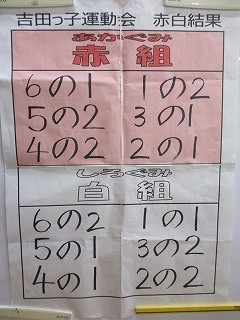 吉田っ子運動会 赤白結果
あかぐみ
赤組
6の1 1の2
5の2 3の1
4の2 2の1
しろぐみ
白組
6の2 1の1
5の1 3の2
4の1 2の2